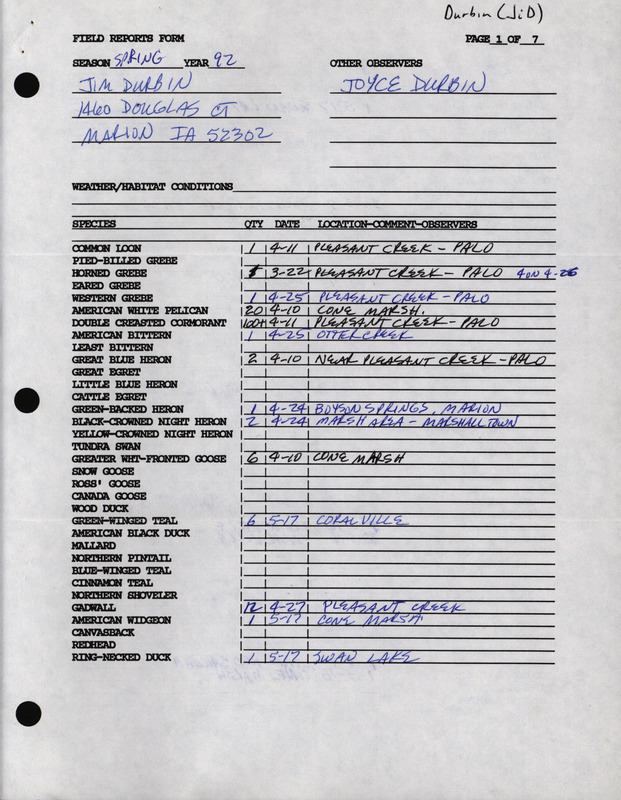 Durbin (JiD)
FIELD REPORTS FORM PAGE 1 OF 7
SEASON SPRING YEAR 92 OTHER OBSERVERS
JIM DURBIN JOYCE DURBIN
1460 DOUGLAS CT
MARION IA 52302
WEATHER/HABITAT CONDITIONS
SPECIES QTY DATE LOCATION-COMMENT-OBSERVERS
COMMON LOON 1 4-11 PLEASANT CREEK - PALO
PIED-BILLED GREBE
HORNED GREBE 3-22 PLEASANT CREEK - PALO 4 ON 4-26
EARED GREBE
WESTERN GREBE 1 4-25 PLEASANT CREEK - PALO
AMERICAN WHITE PELICAN 20 4-10 CONE MARSH.
DOUBLE CREASTED CORMORANT 100+ 4-11 PLEASANT CREEK - PALO
AMERICAN BITTERN 1 4-25 OTTER CREEK
LEAST BITTERN
GREAT BLUE HERON 2 4-10 NEAR PLEASANT CREEK - PALO
GREAT EGRET
LITTLE BLUE HERON
CATTLE EGRET
GREEN-BACKED HERON 1 4-24 BOYSON SPRINGS, MARION
BLACK-CROWNED NIGHT HERON 2 4-24 MARSH AREA - MARSHALLTOWN
YELLOW-CROWNED NIGHT HERON
TUNDRA SWAN
GREATER WHT-FRONTED GOOSE 6 4-10 CONE MARSH
SNOW GOOSE
ROSS' GOOSE
CANADA GOOSE
WOOD DUCK
GREEN-WINGED TEAL 6 5-17 CORALVILLE
AMERICAN BLACK DUCK
MALLARD
NORTHERN PINTAIL
BLUE-WINGED TEAL
CINNAMON TEAL
NORTHERN SHOVELER
GADWALL 12 4-27 PLEASANT CREEK
AMERICAN WIDGEON 1 5-17 CONE MARSH
CANVASBACK
REDHEAD
RING-NECKED DUCK 1 5-17 SWAN LAKE